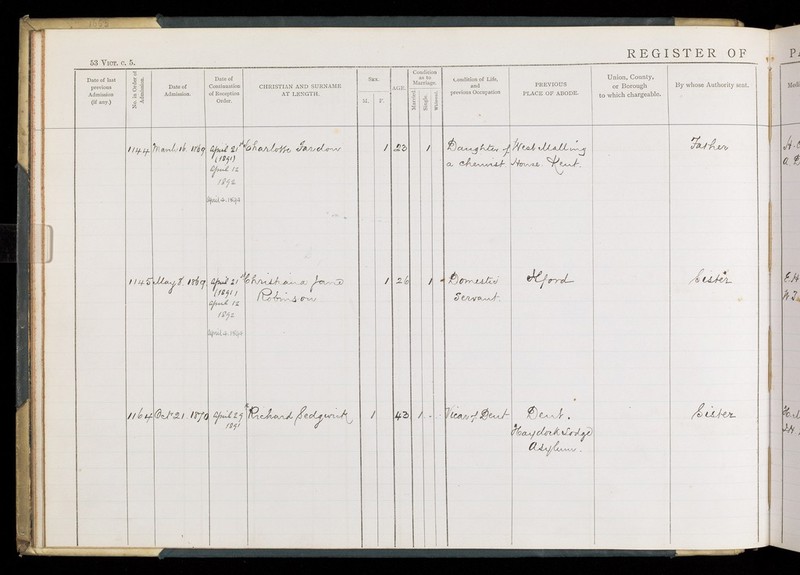 53 VICT. C. 5.
REGISTER OF
Date of last previous Admission (if any.)
No. in Order of Admission.
Date of Admission.
Date of Continuation of Reception Order.
CHRISTIAN AND SURNAME AT LENGTH.
SEX.
M.
F.
AGE.
Condition as to Marriage.
Married.
Single.
Widowed.
Condition of Life, and previous Occupation
PREVIOUS PLACE OF ABODE.
Union, County, or Borough to which chargeable.
By whose Authority sent.
1144 March 16 1869 April 21 Charlotte 1 23 1 Daughter of West Malling Father
(1891) a chemist House. Kent.
April 12
1892
April 4. 1894
1145 May 8. 1869 April 21 Christiana Jane 1 26 1 Domestic Ilford Sister
(1891) Robinson Servant
April 12
1892
April 4. 1894
1164 Oct 21 1870 April 29 Richard Sedgwick 1 43 1 Vicar of Dent Dent. Sister
1891 Haydock Lodge
Asylum.